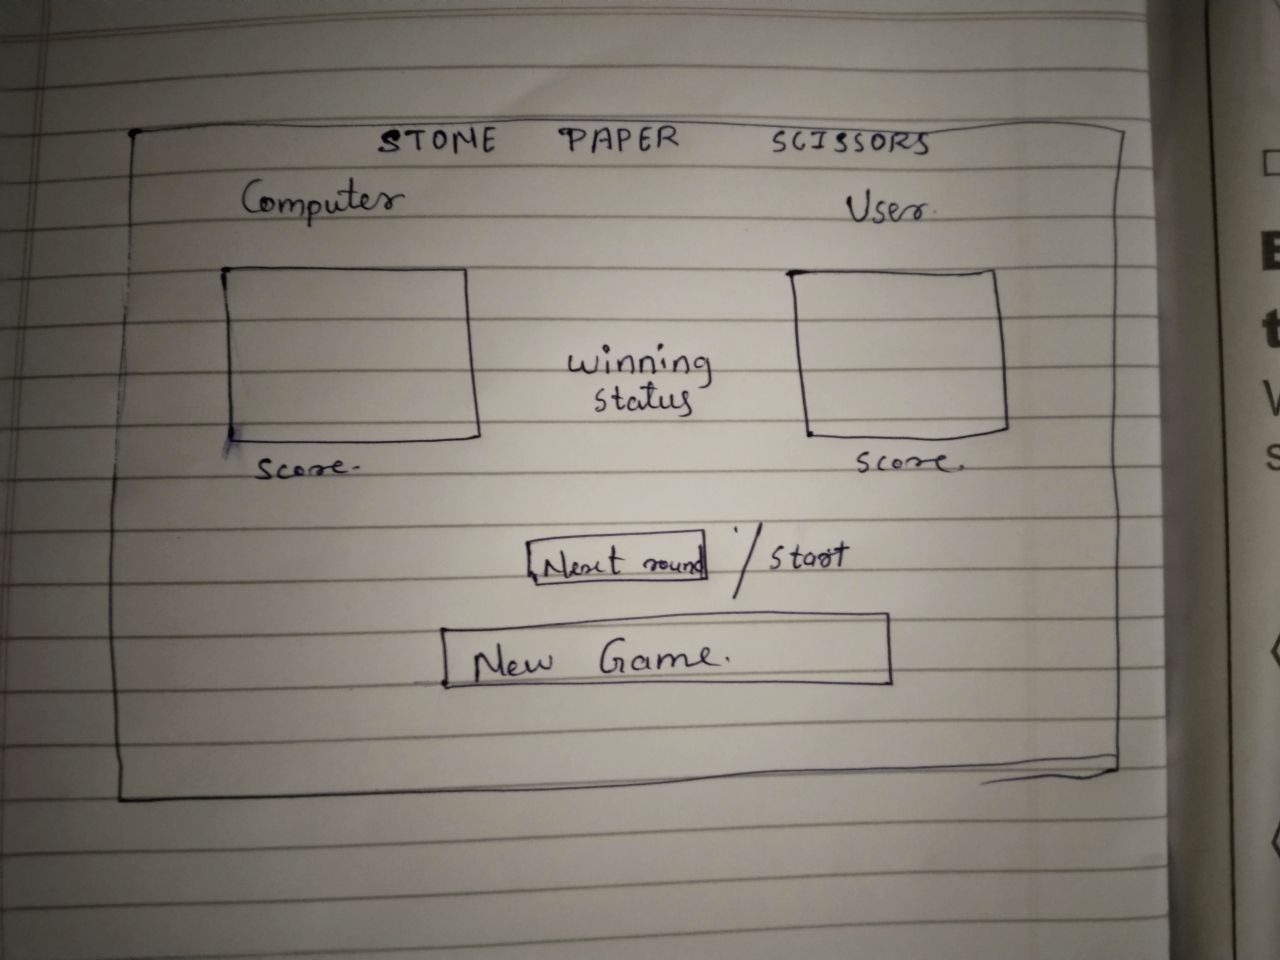 STONE PAPER SCISSORS
Computer User.
winning
status
Score. Score.
Next round / Start
New Game.